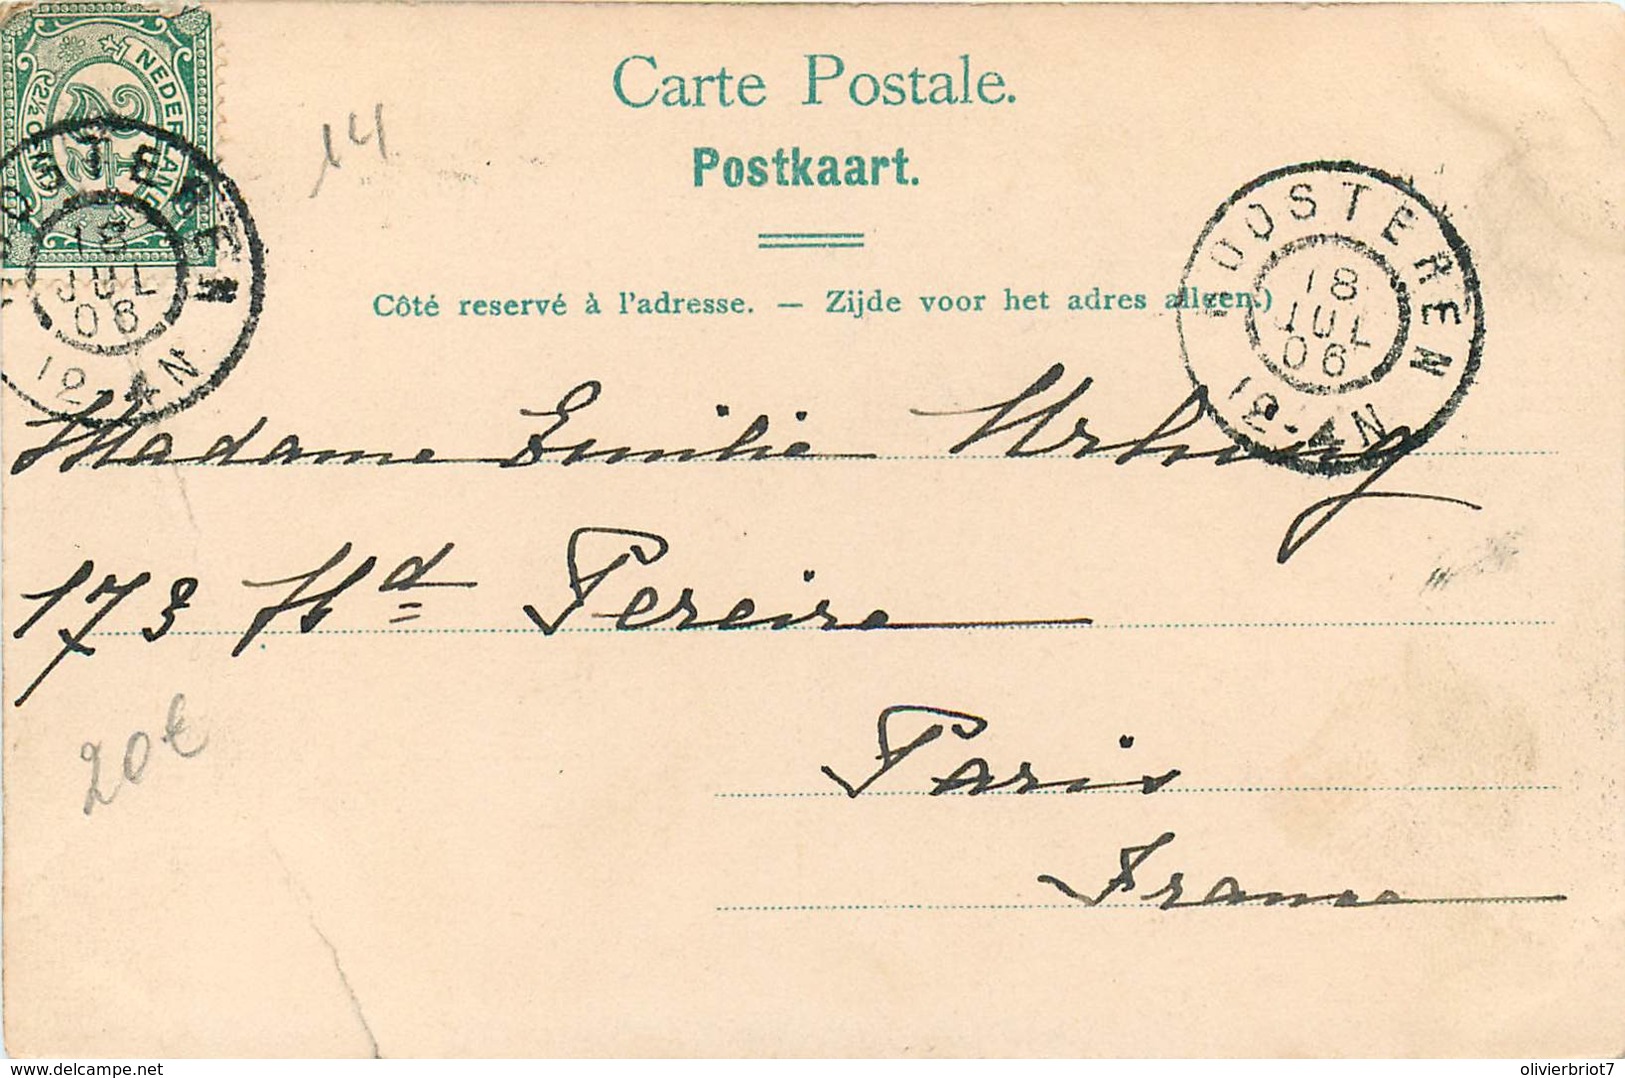 NEDERLAND
2½ CENT
2½
ROOSTEREN
18
JUL
06
12-4N
14
Carte Postale.
Postkaart.
Côté reservé à l'adresse. — Zijde voor het adres alleen.)
ROOSTEREN
18
JUL
06
12-4N
Madame Emilie
173 Bd Pereire
Paris
France
20€
delcampe.net
olivierbriot7